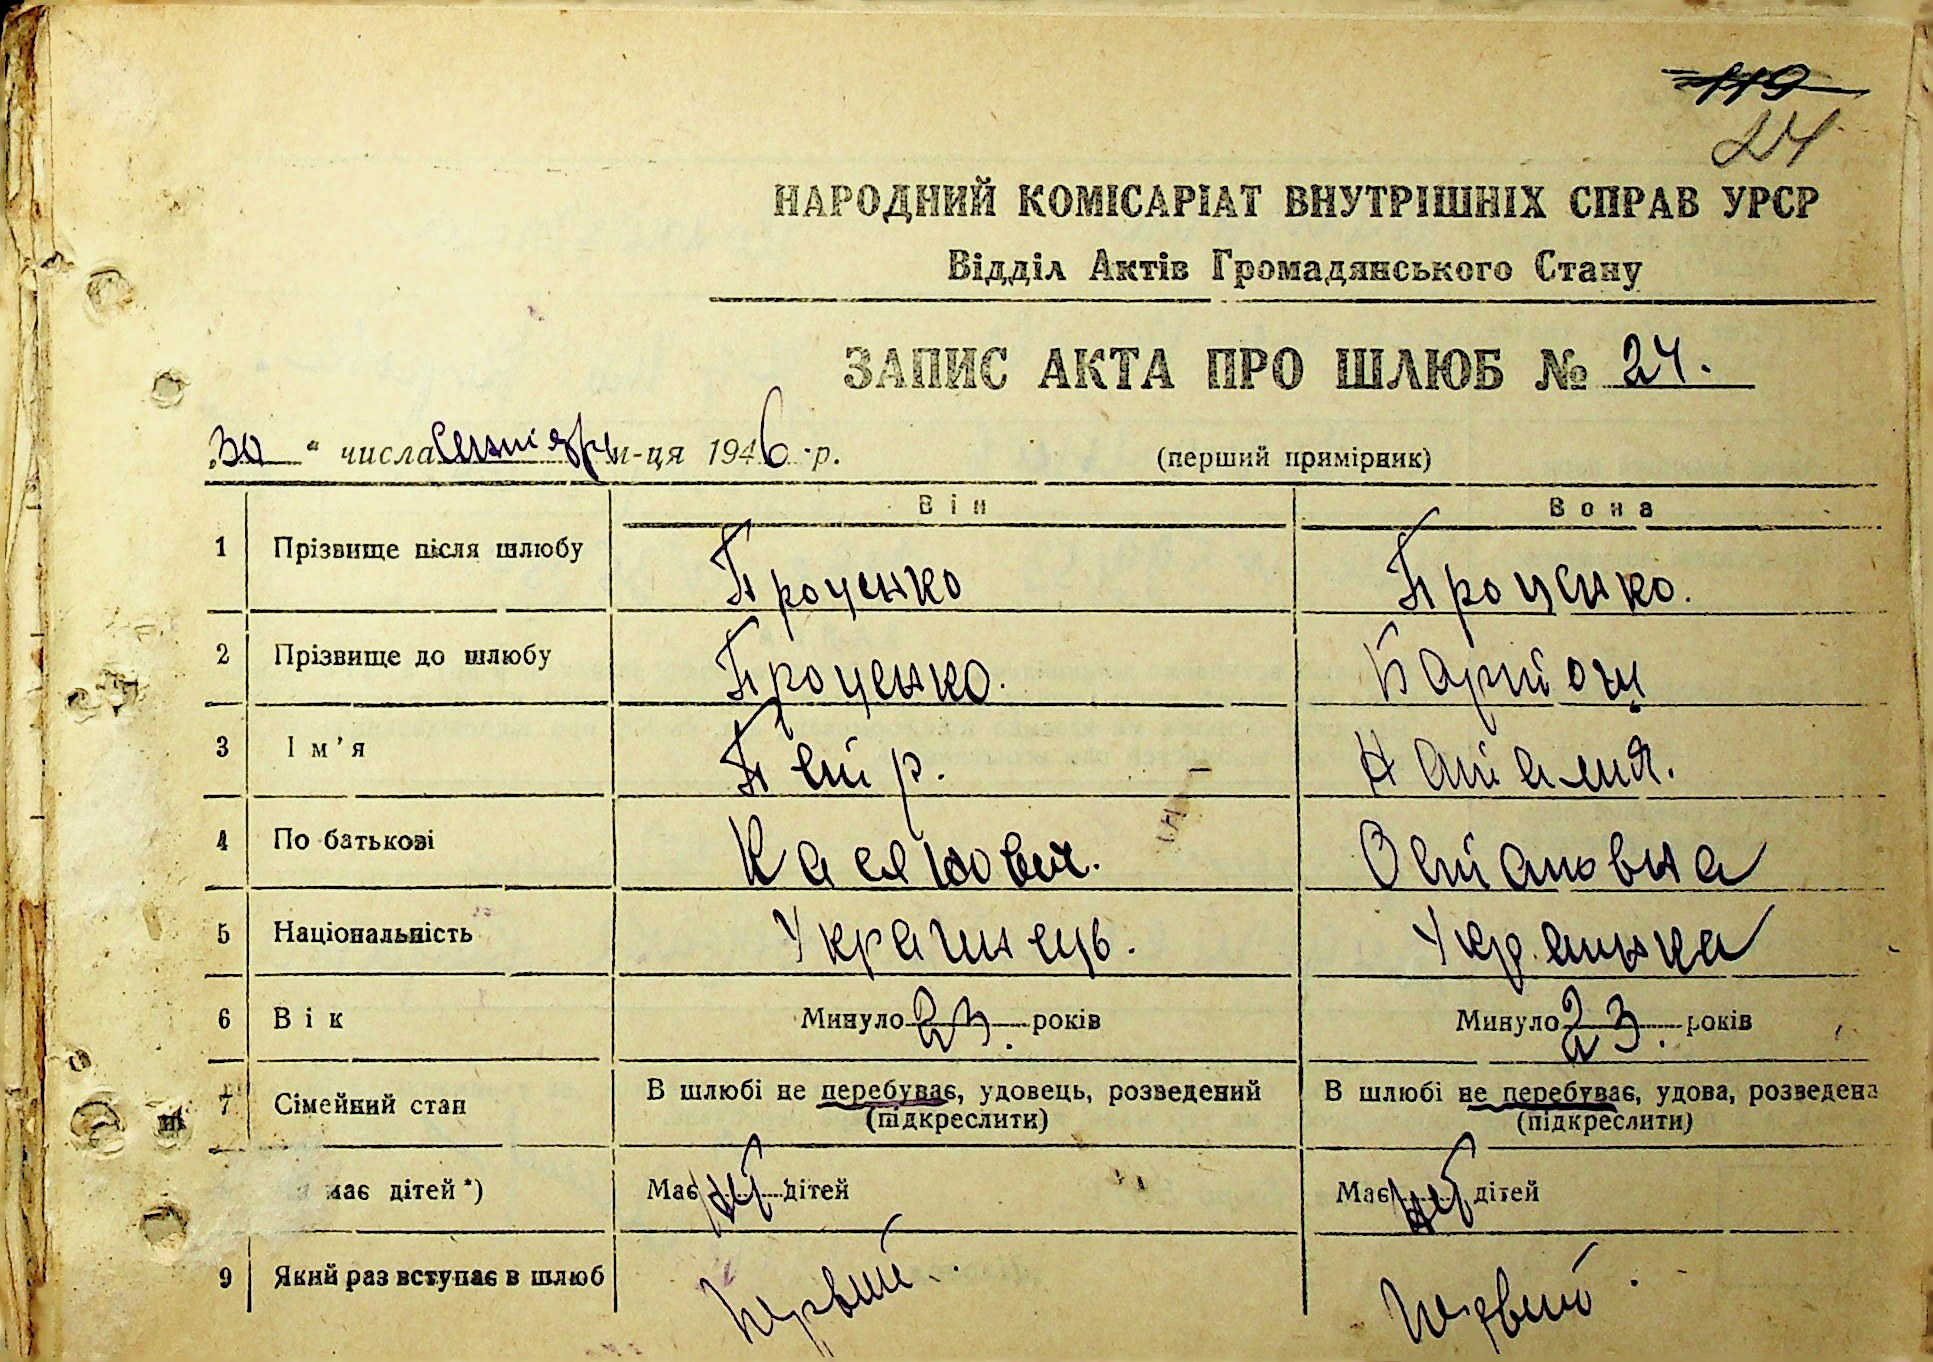 119
24
НАРОДНИЙ КОМІСАРІАТ ВНУТРІШНІХ СПРАВ УРСР
Відділ Актів Громадянського Стану
ЗАПИС АКТА ПРО ШЛЮБ № 24.
„30" числа Сентября м-ця 1946 р.
(перший примірник)
Він Вона
1 Прізвище після шлюбу Проценко Проценко.
2 Прізвище до шлюбу Проценко.
3 Ім'я Петр. Наталия.
4 По батькові Остаповна
5 Національність Украинець. Украинка
6 Вік Минуло 23. років Минуло 23. років
7 Сімейний стан В шлюбі не перебуває, удовець, розведений В шлюбі не перебуває, удова, розведена
(підкреслити) (підкреслити)
має дітей*) Має нет дітей Має нет дітей
9 Який раз вступає в шлюб Первый. Первый.